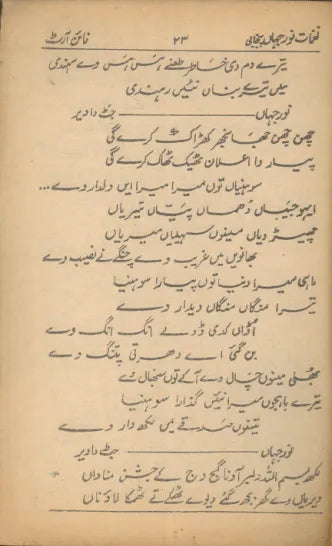 نغمات نورجہاں پنجابی ۲۳ فائن آرٹ
تیرے دم دی خاطر طعنے ہس ہس وے سہندی
میں تیرے بناں نئیں رہندی
نورجہاں ——— جٹ دا ویر
چھن چھن جھانجر کھڑاک کرے گی
پیار دا اعلان ٹھیک ٹھاک کرے گی
سوہنیاں توں میرا میرا ایں دلدار وے...
ایہو جیہاں دھماں پیّاں تیریاں
چھیڑ دیاں مینوں سہیلیاں میریاں
بھانویں میں غریب وے چنگے نے نصیب وے
ماہی میرا دنیا توں پیارا سوہنیا
تیرا منگاں منگاں دیدار وے
اڈاں کدی ڈولے انگ انگ وے
بن گئی اے دھرتی پتنگ وے
بھلی مینوں چال وے آ کے توں سنبھال وے
تیرے باہجوں میرا نئیں گذارا سوہنیا
تینوں صدقے میں لکھ وار وے
نورجہاں ——— جٹ دا ویر
لکھ بسم اللہ دلبر آونا گج وج کے جشن مناواں
ویریاں دے گھر بجھ گئے دیوے ٹھمکے تے ٹھمکا لاؤناں